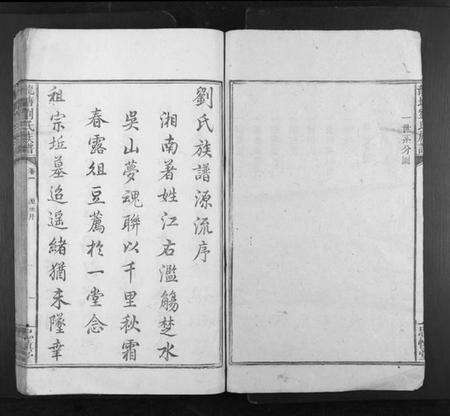 一世系分圖
劉氏族譜源流序
湘南著姓江右濫觴楚水
吳山夢魂聯以千里秋霜
春露俎豆薦於一堂念
祖宗坵墓迢遥緒猶未墜幸
劉氏族譜 卷一